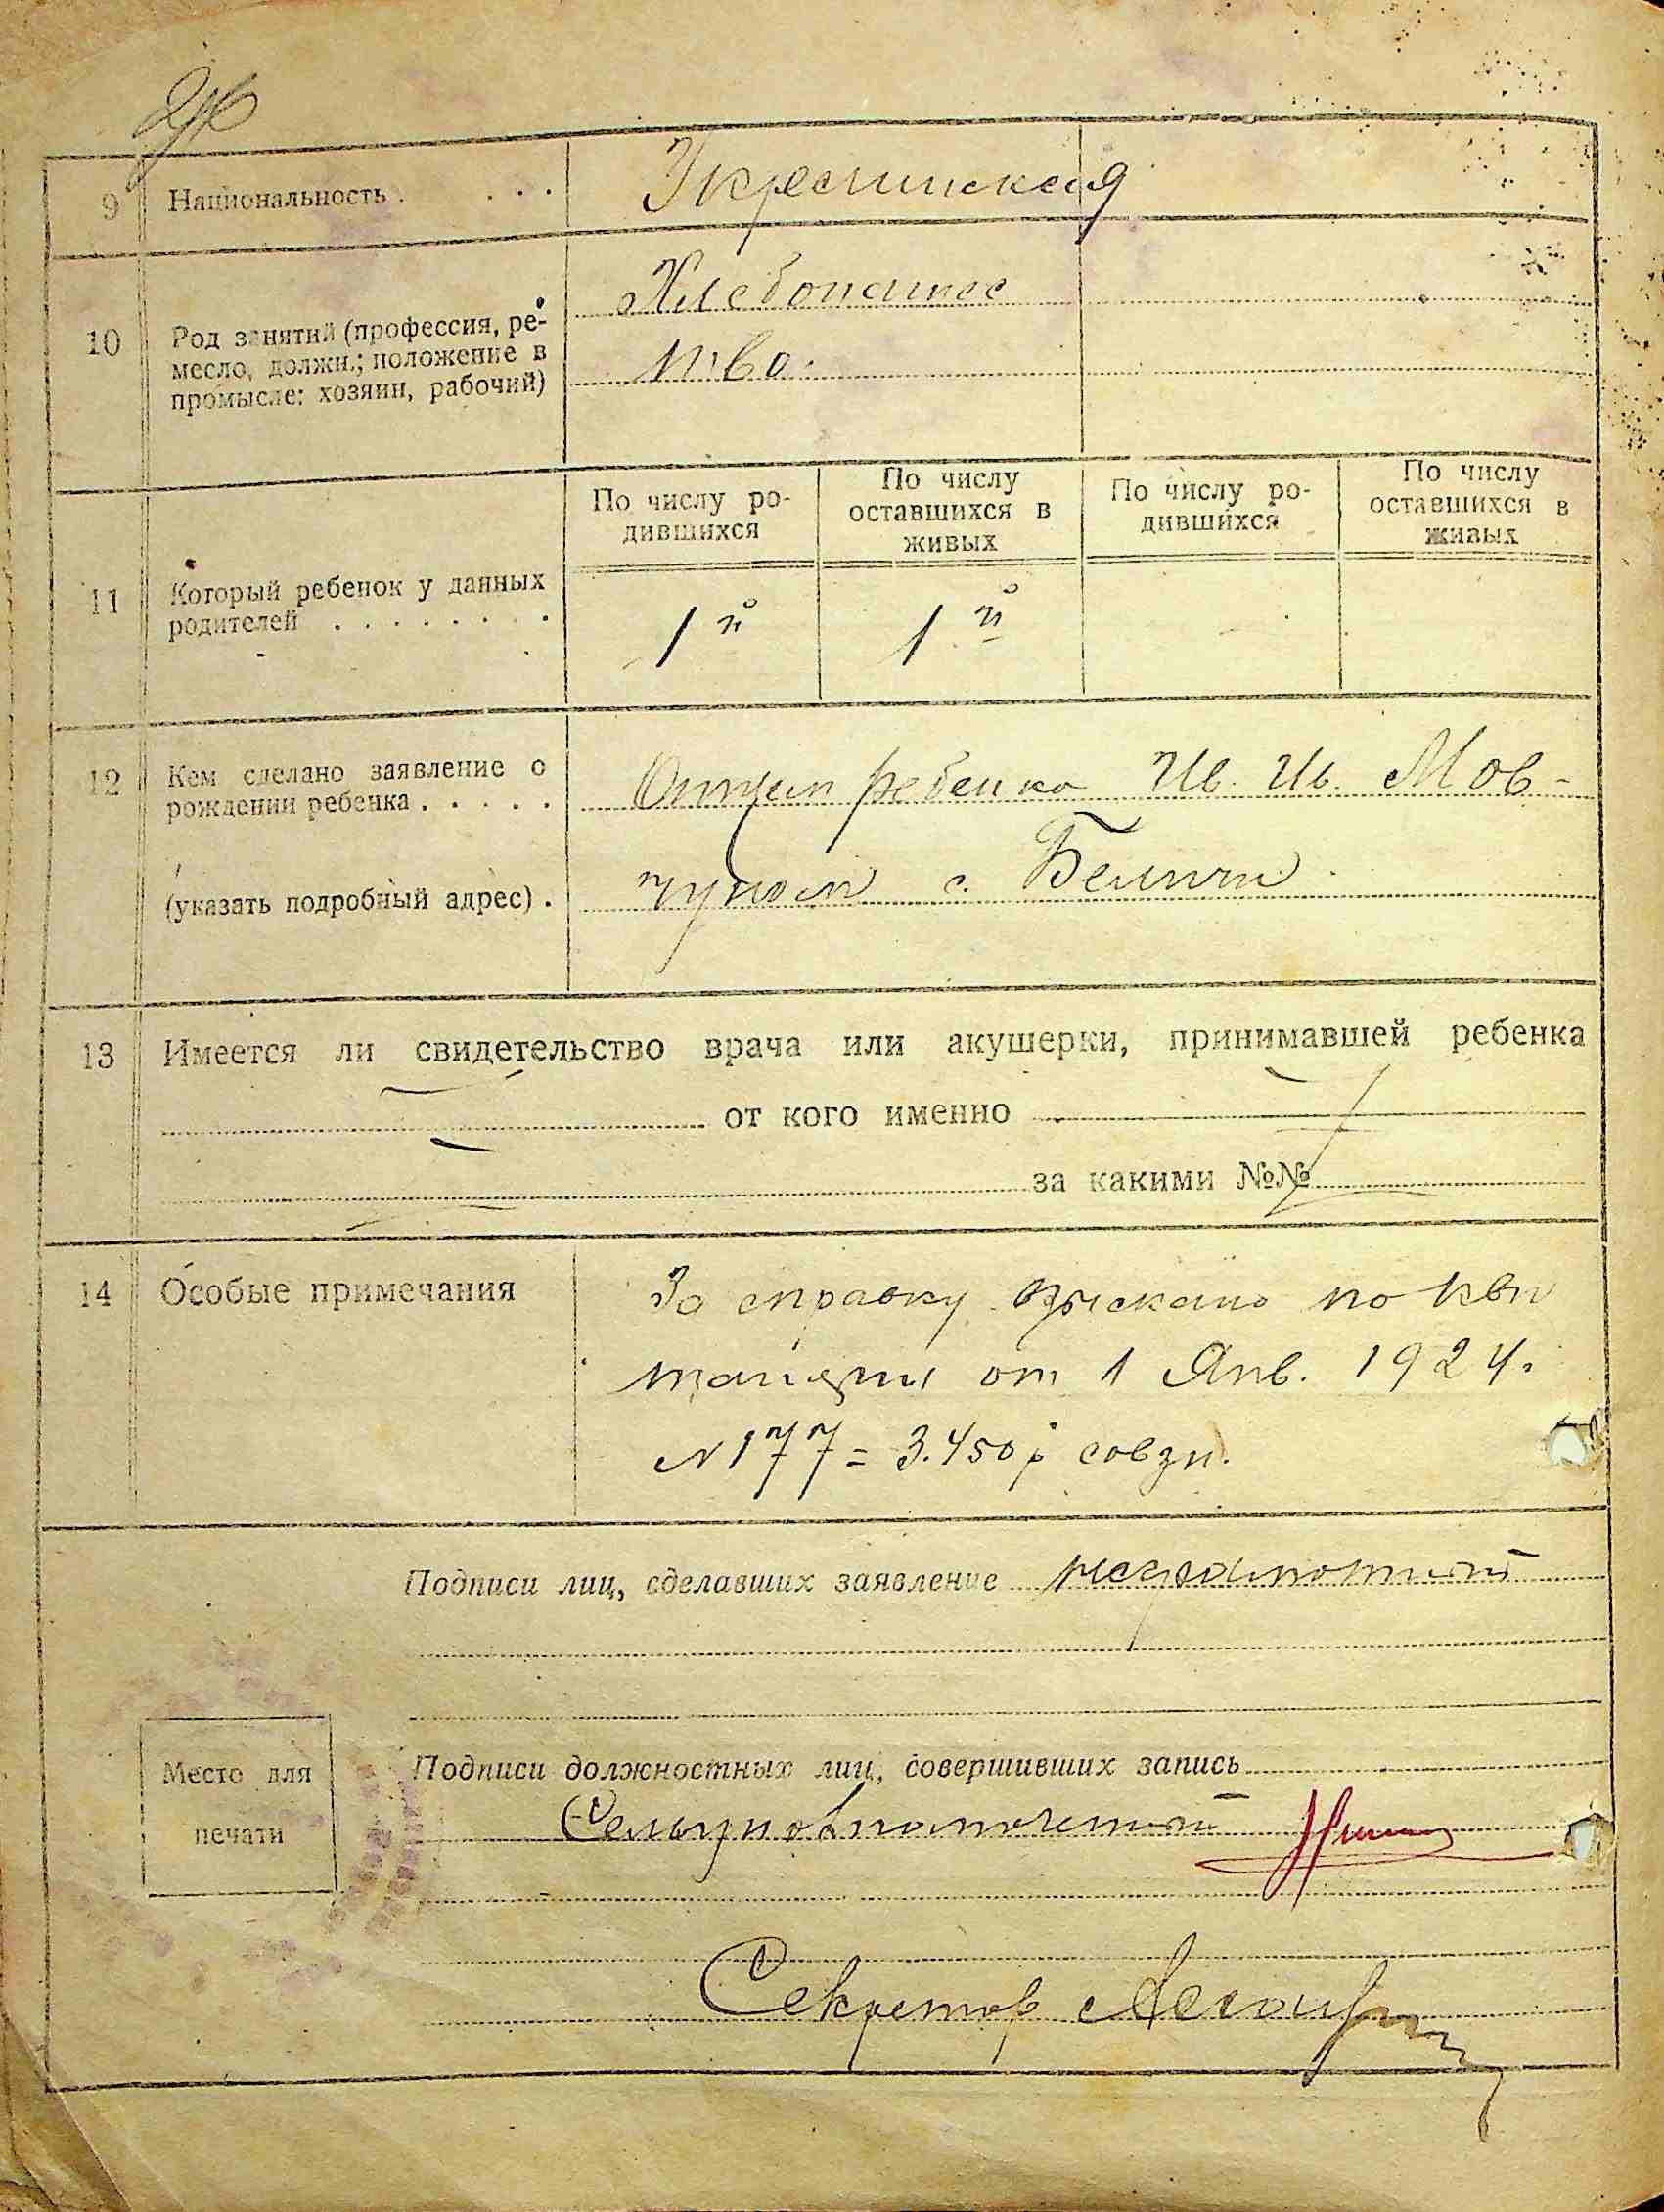 9 Национальность . . . . Украинская
10 Род занятий (профессия, ре-
месло, должн.; положение в
промысле: хозяин, рабочий)
Хлебопашес
тво.
По числу ро-
дившихся
По числу
оставшихся в
живых
По числу ро-
дившихся
По числу
оставшихся в
живых
11 Который ребенок у данных
родителей . . . . . . . .
1й 1й
12 Кем сделано заявление о
рождении ребенка . . . . .
(указать подробный адрес) .
Отцем ребенка Ив. Ив. Мов-
чуном с.
13 Имеется ли свидетельство врача или акушерки, принимавшей ребенка
от кого именно
за какими №№
14 Особые примечания
За справку взыскано по кви
танции от 1 Янв. 1924.
№ 177 = 3.450 р совзн.
Подписи лиц, сделавших заявление неграмотный
Место для
печати
Подписи должностных лиц, совершивших запись
Сельуповномоченный
Секретарь